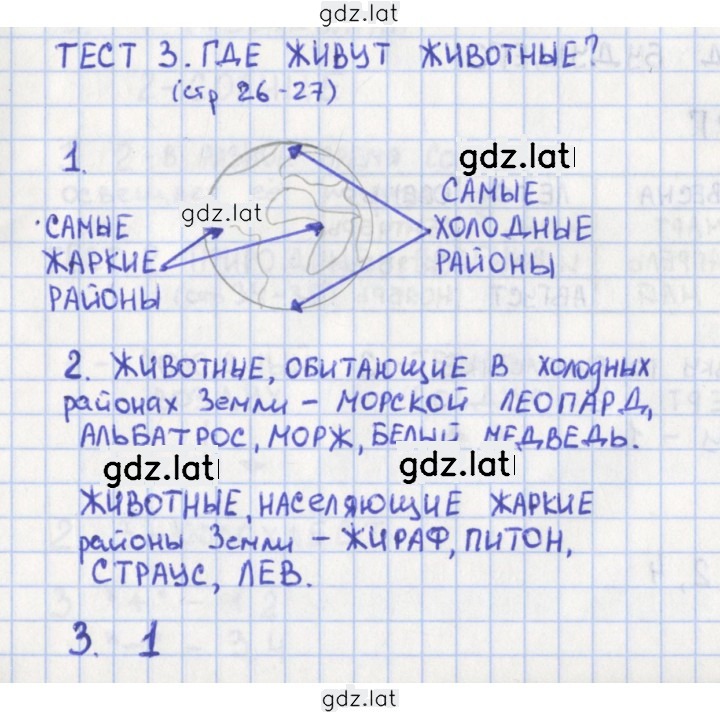 gdz.lat
ТЕСТ 3. ГДЕ ЖИВУТ ЖИВОТНЫЕ?
(стр 26-27)
1.
gdz.lat
gdz.lat
САМЫЕ
ЖАРКИЕ
РАЙОНЫ
САМЫЕ
ХОЛОДНЫЕ
РАЙОНЫ
2. ЖИВОТНЫЕ, ОБИТАЮЩИЕ В холодных
районах Земли - МОРСКОЙ ЛЕОПАРД,
АЛЬБАТРОС, МОРЖ, БЕЛЫЙ МЕДВЕДЬ.
gdz.lat gdz.lat
ЖИВОТНЫЕ, НАСЕЛЯЮЩИЕ ЖАРКИЕ
районы Земли - ЖИРАФ, ПИТОН,
СТРАУС, ЛЕВ.
3. 1
gdz.lat